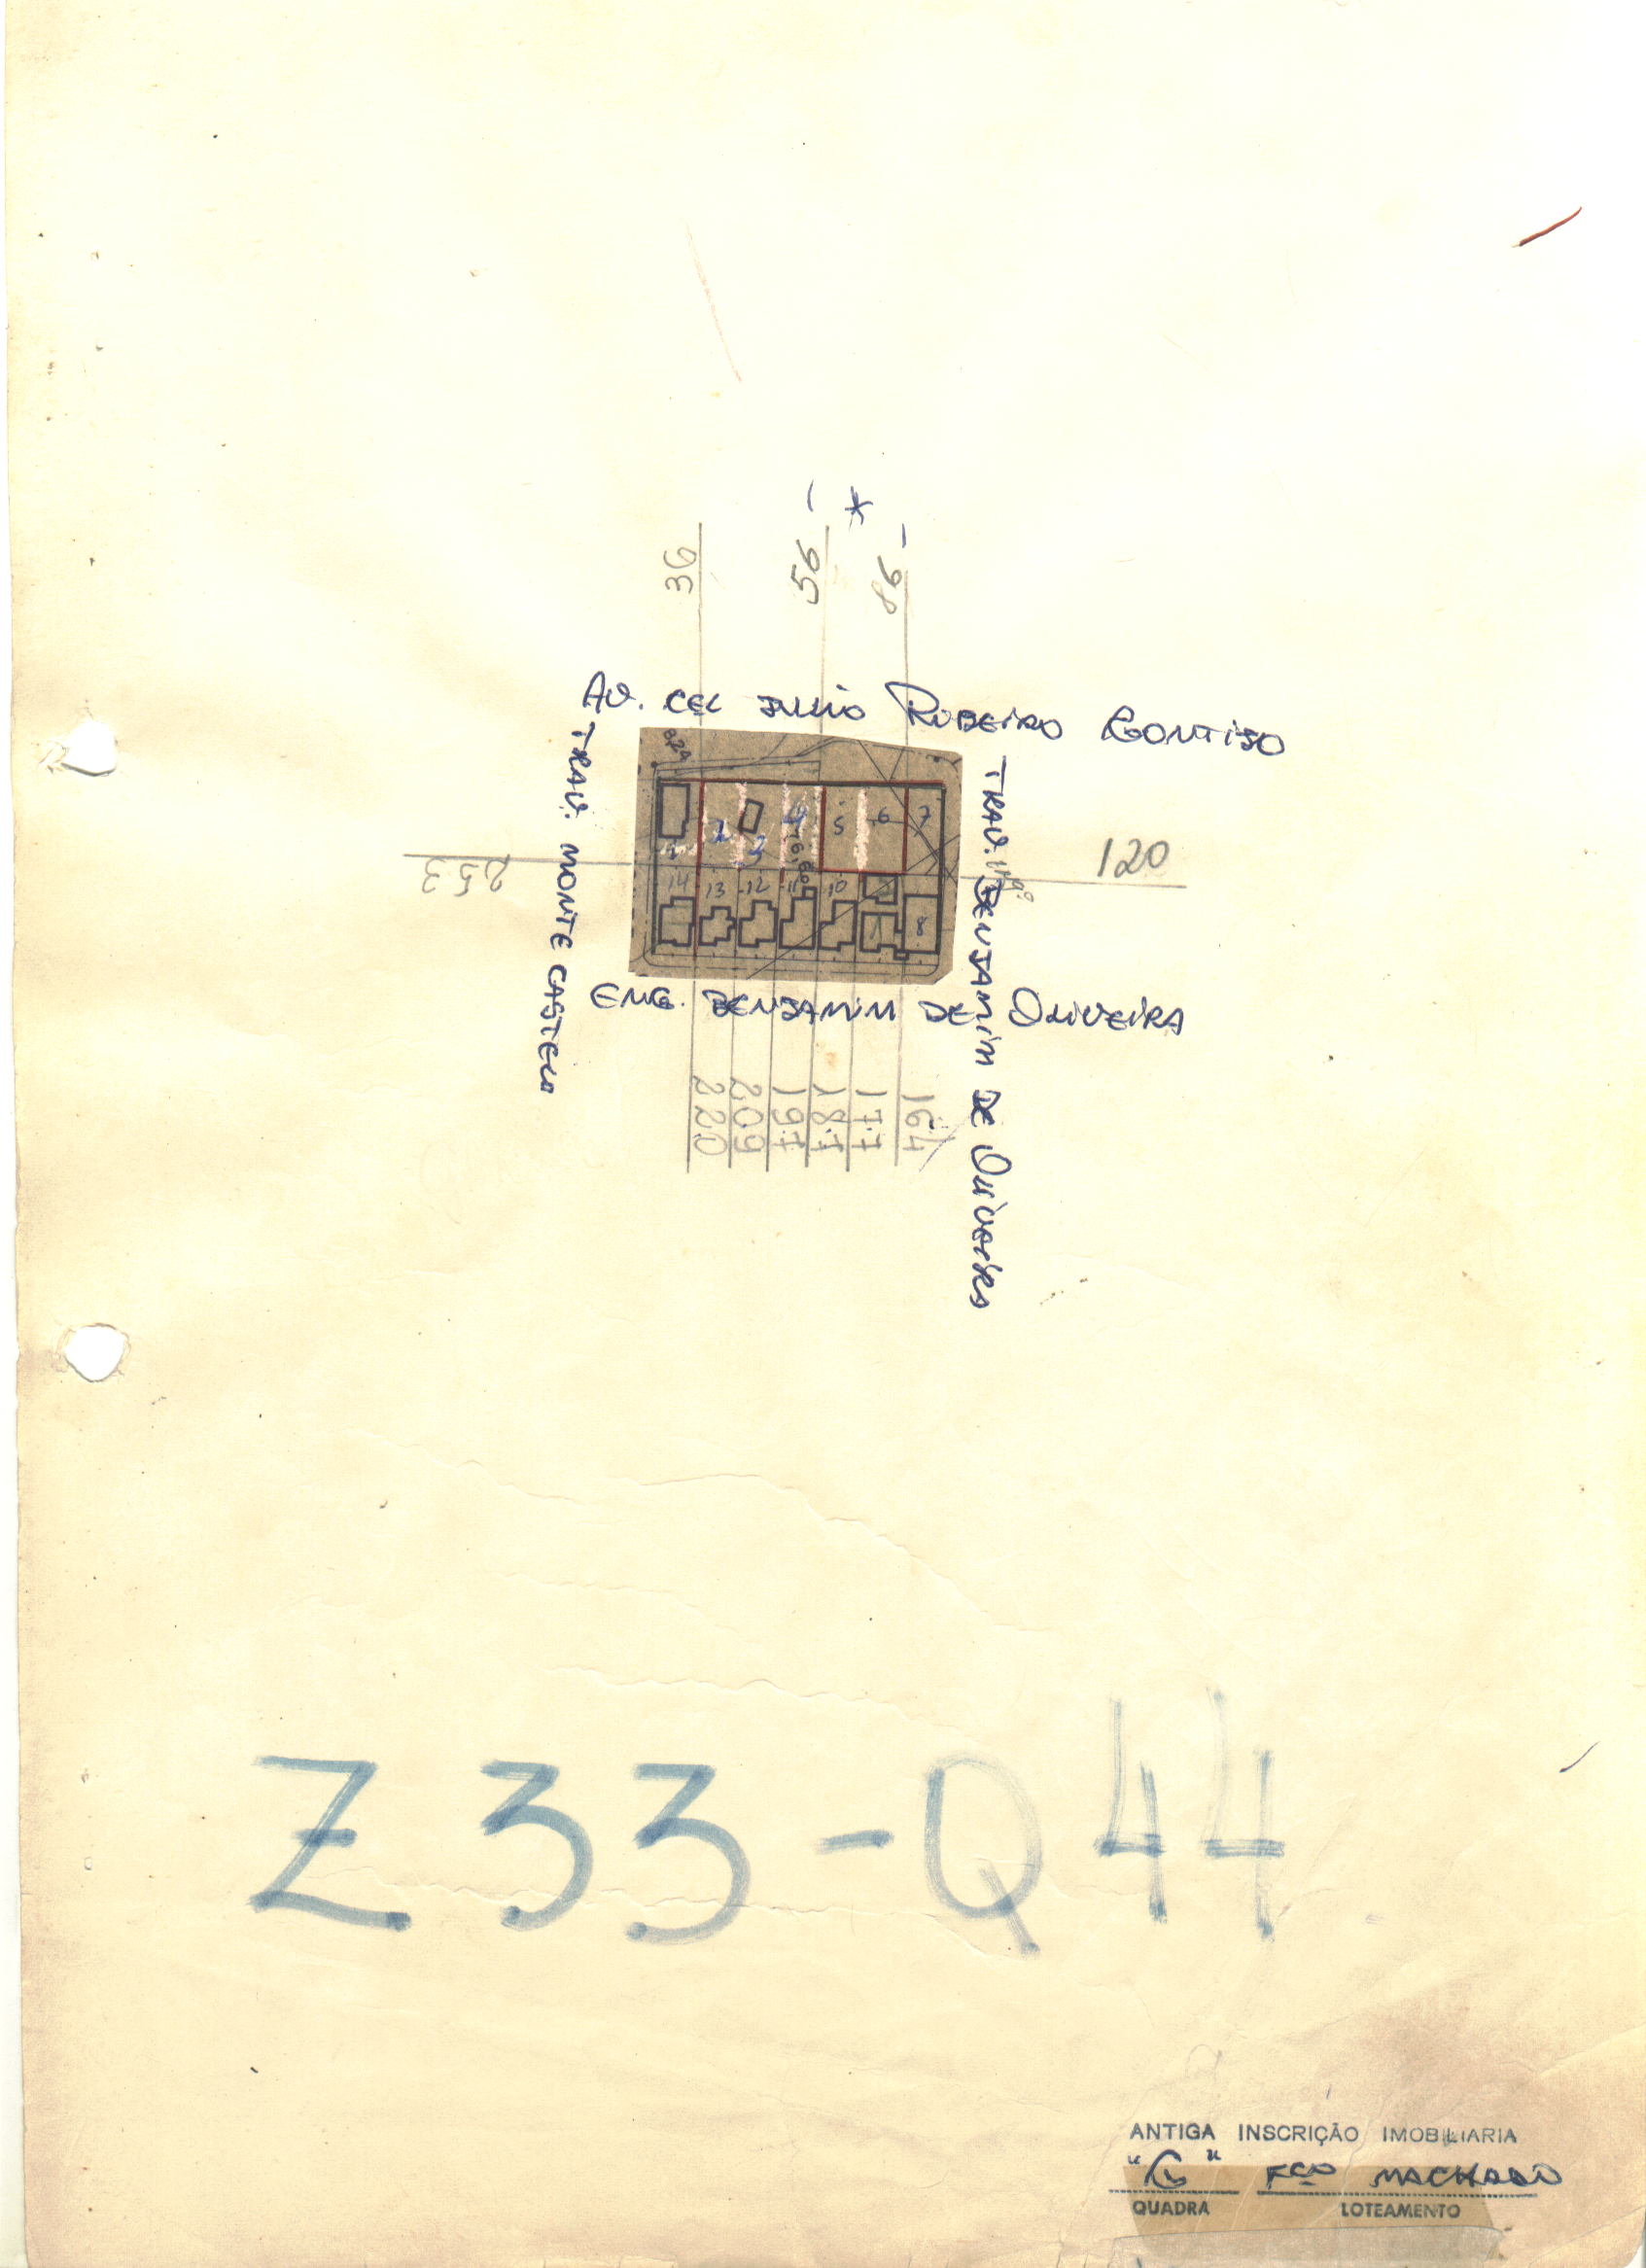 36
56
86
*
AV. CEL JULIO RIBEIRO GONTIJO
TRAV. MONTE CASTELO
TRAV. BENJAMIN DE OLIVEIRA
2
3
4
5
6
7
16,60
14
13
12
11
10
8
253
120
ENG. BENJAMIN DE OLIVEIRA
220
209
197
187
177
164
Z33-Q44
ANTIGA INSCRIÇÃO IMOBILIARIA
"G" FCO MACHADO
QUADRA LOTEAMENTO